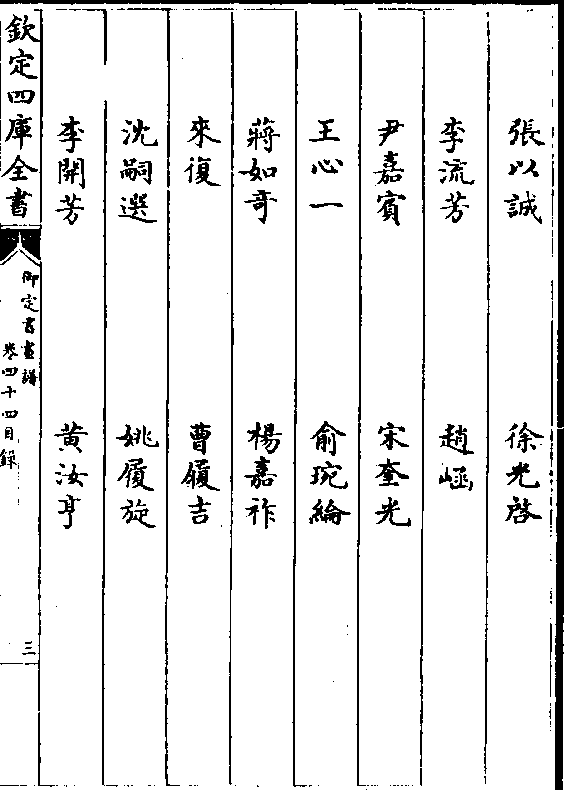 張以誠　徐光啓
李流芳　趙崡
尹嘉賓　宋奎光
王心一　俞琬綸
蔣如奇　楊嘉祚
來復　曹履吉
沈嗣選　姚履旋
李開芳　黃汝亨
欽定四庫全書　御定書畫譜　卷四十四目錄　三